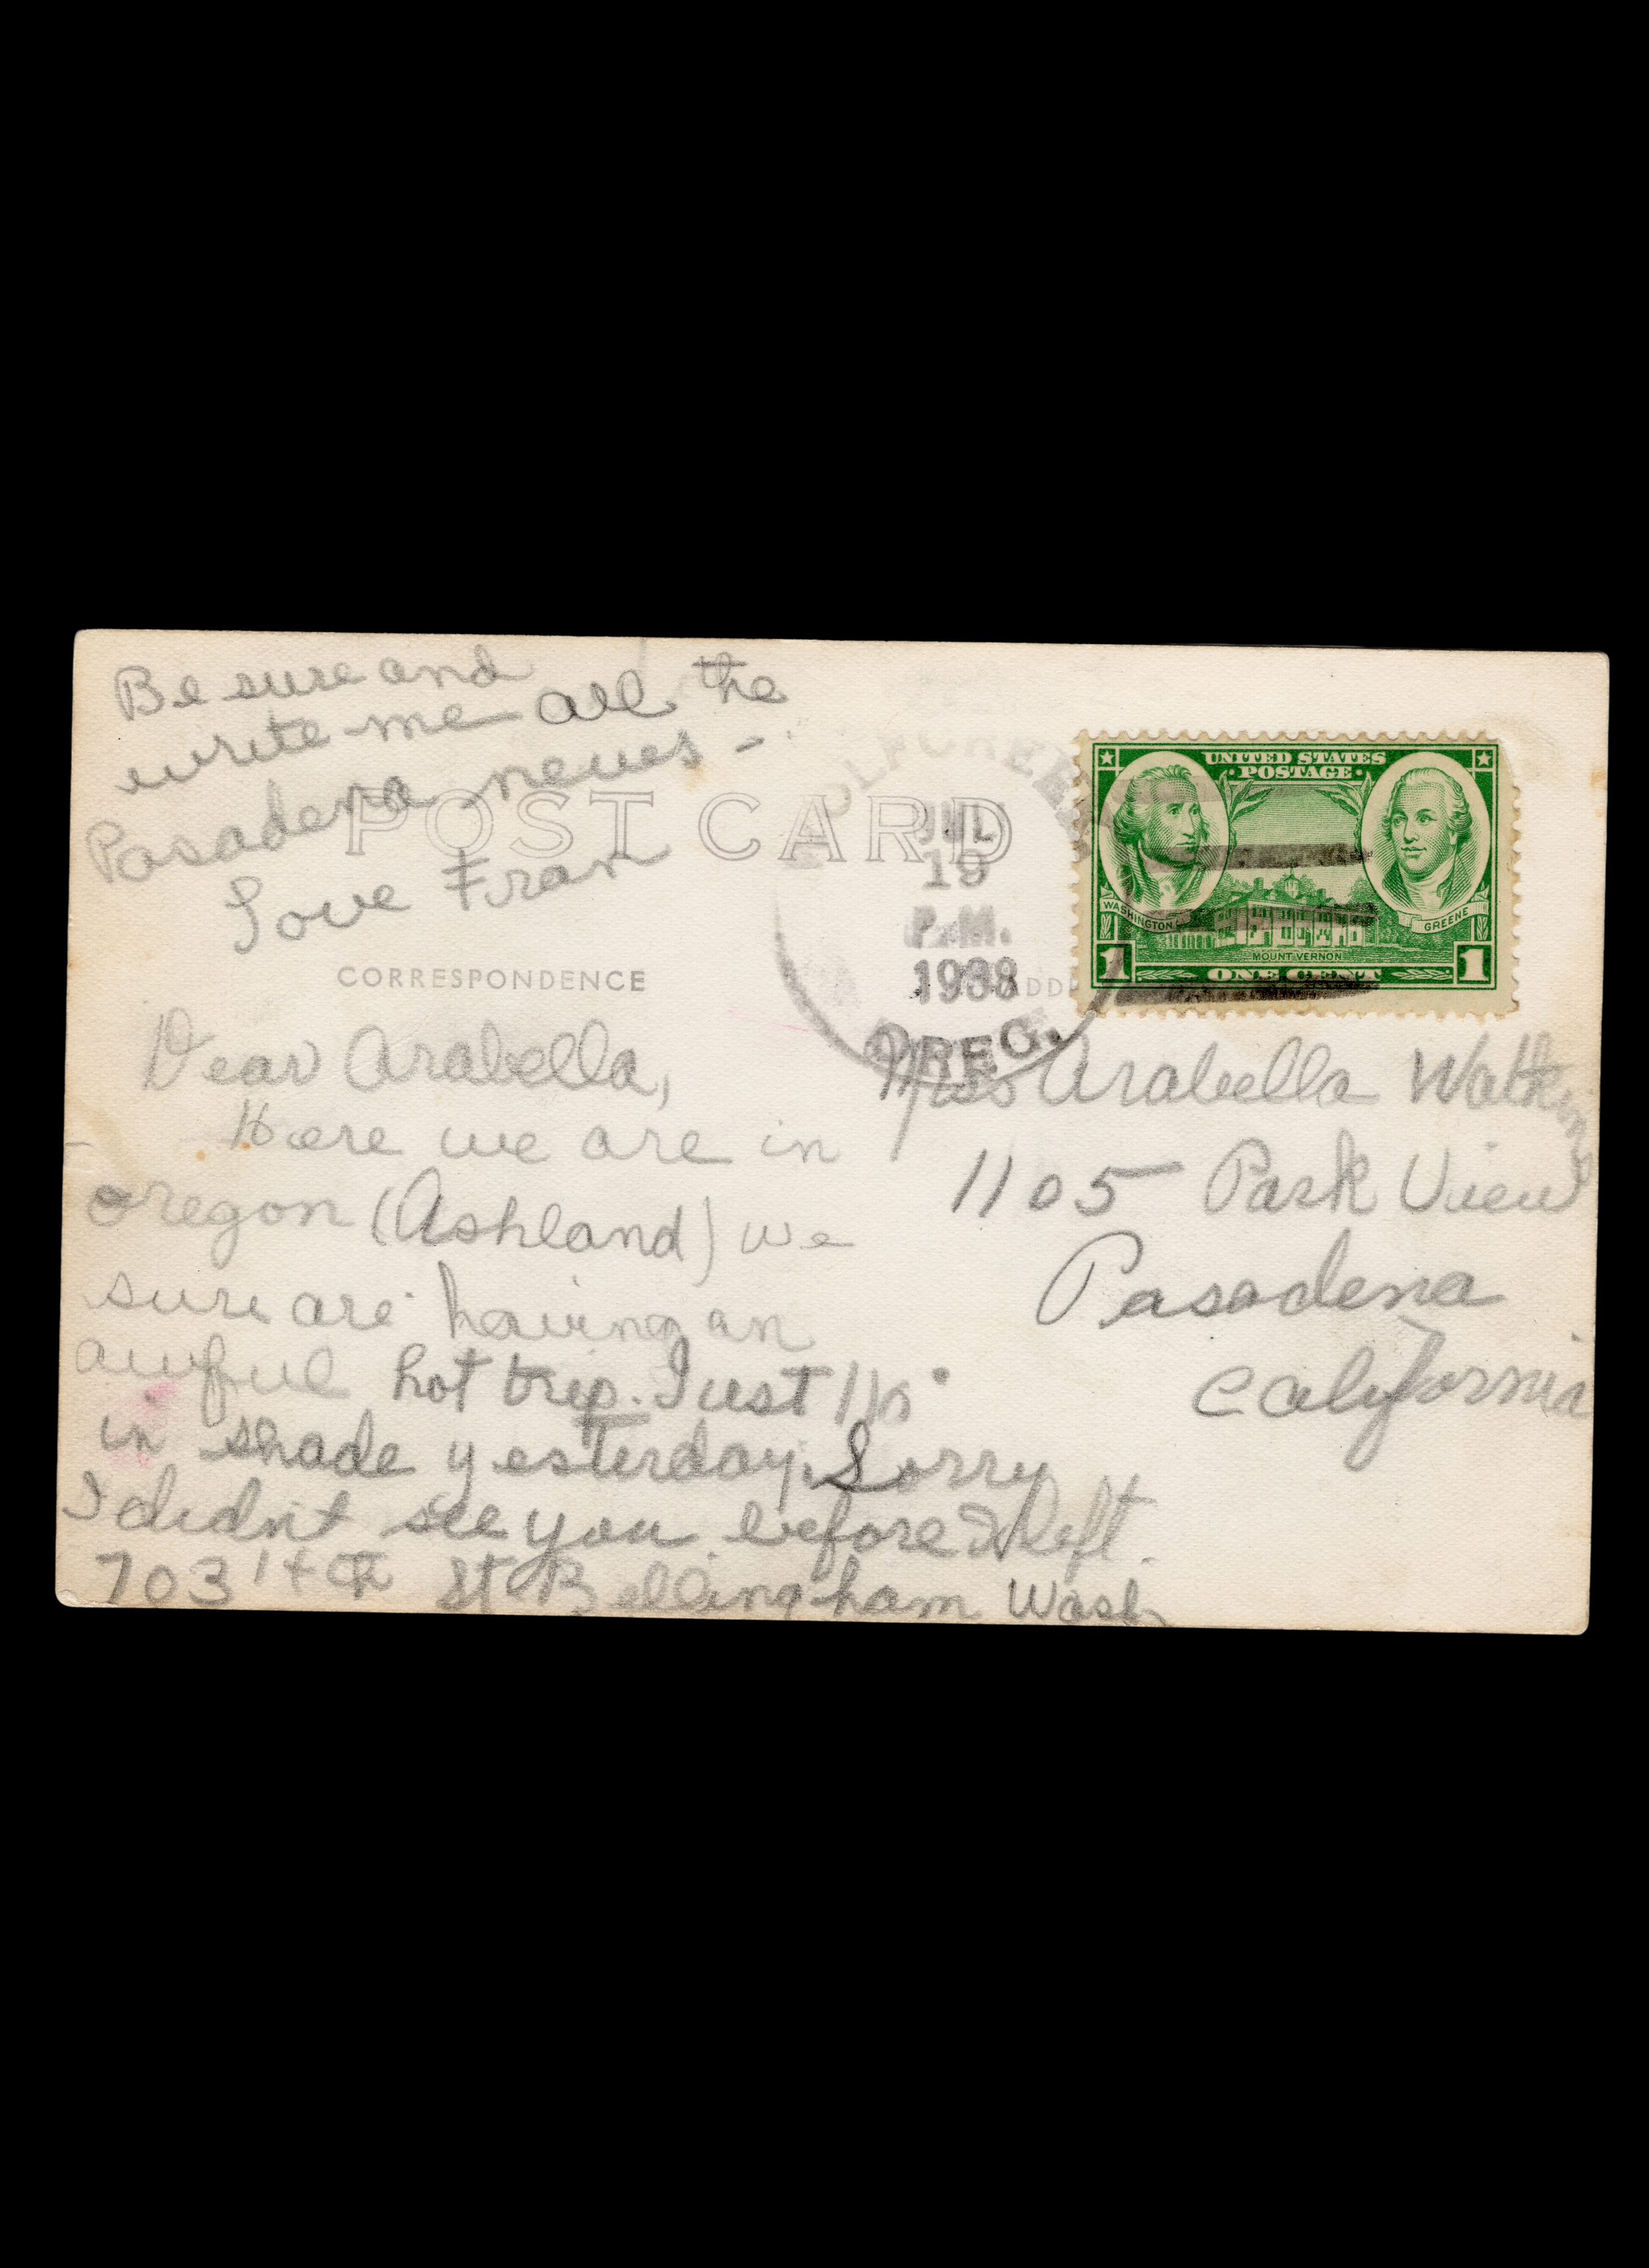 Be sure and
write me all the
Pasadena news -
Love Fran
POST CARD
CORRESPONDENCE
Dear Arabella,
Here we are in
Oregon (Ashland) we
sure are having an
awful hot trip. Just
in shade yesterday. Sorry
I didn't see you before I left.
703 14th St Bellingham Wash
OLF CREEK
JUL
19
P.M.
1938
OREG.
ADD
UNITED STATES
POSTAGE
WASHINGTON
GREENE
MOUNT VERNON
1 ONE CENT 1
Miss Arabella Watkins
1105 Park View
Pasadena
California